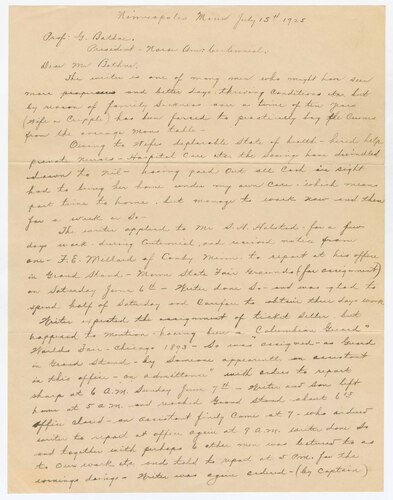 Minneapolis Minn July 15th 1925
Prof. G. Bothne.
President - Norse Am. Centennial.
Dear Mr Bothne.
The writer is one of many men who might have seen
more prosperous and better days, thriving conditions etc but
by reason of family sickness over a time of ten years
(Wife a Cripple) has been forced to practically beg the Crumbs
from the average Mans table -
Owing to Wifes deplorable State of health - hired help
private Nurses - Hospital Care etc the Savings have dwindled
down to Nil - having paid out all Cash in sight
had to bring her home under my own Care - which means
part time to home, but manage to work now and then
for a week or so -
The writer applied to Mr S. H. Holstad - for a few
days work during Centennial, and received notice from
one - F. E. Millard of Canby Minn. to report at his office
in Grand Stand - Minn State Fair Grounds (for assignment)
on Saturday June 6th - Writer done So - and was glad to
spend half of Saturday and Carfare to obtain three days work
Writer expected the assignment of ticket Seller but
happened to mention having been a "Columbian Guard"
Worlds Fair - Chicago 1893 - So was "assigned" as Guard
in Grand Stand - by Someone apparently an assistant
in this office - on admittance" with orders to report
sharp at 6 A.M. Sunday June 7th - Writer and Son left
home at 5 a.m. and reached Grand Stand about 6 15
office closed - an assistant finally Came at 7 - who ordered
writer to report at office again at 9 A.M. writer done So
and together with perhaps 6 other men was lectured to as
to Our work etc. and told to report at 5 P.M. for the
evenings doings - Writer was again ordered - (by Captain)